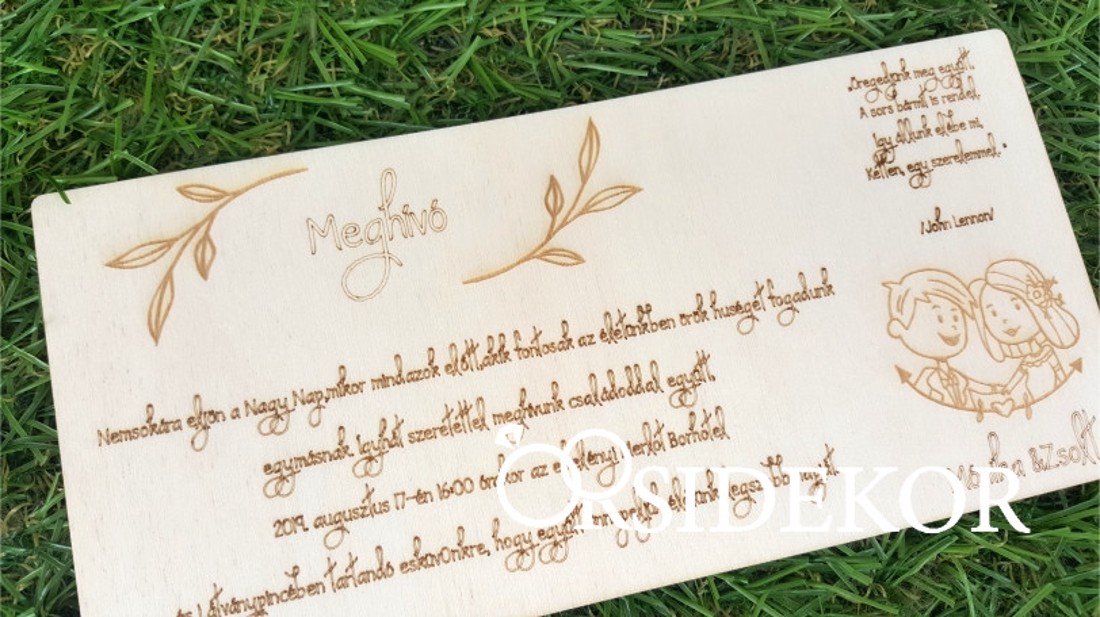 Meghívó
Nemsokára eljön a Nagy Nap,mikor mindazok előtt,akik fontosak az életünkben örök hűséget fogadunk
egymásnak. Így hát szeretettel meghívunk családoddal együtt,
2019. augusztus 17-én 16:00 órakor az Merlot Borhotel
és Látványpincében tartandó esküvőnkre, hogy együtt ünnepeljük életünk legszebb napját
„Öregedjünk meg együtt.
A sors bármit is rendel.
Így állunk elébe mi,
Ketten, egy szerelemmel."
/John Lennon/
&Zsolt
ORSIDEKOR